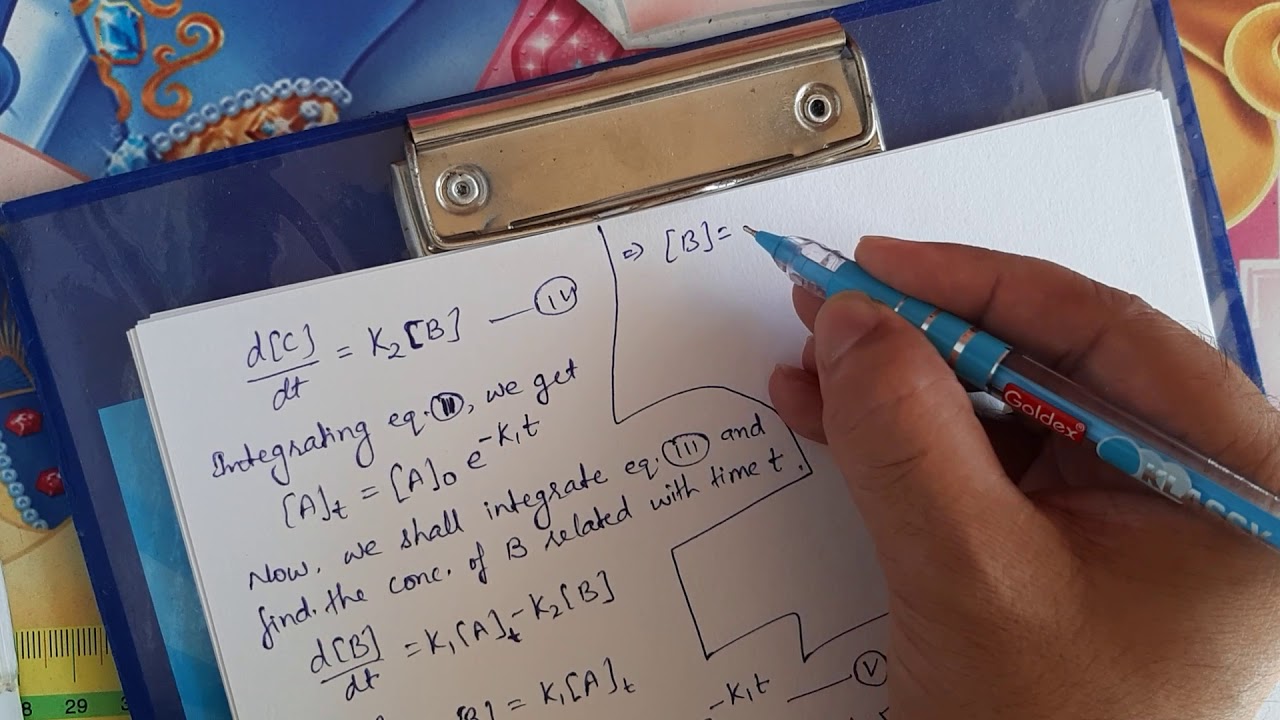 d[C]/dt = K₂[B] — (IV)
Integrating eq. (II), we get
[A]t = [A]₀ e^-K₁t
Now, we shall integrate eq. (III) and
find the conc. of B related with time t.
d[B]/dt = K₁[A]t - K₂[B]
[B] = K₁[A]t
-K₁t — (V)
⇒ [B] =
Goldex
KLASSY
29